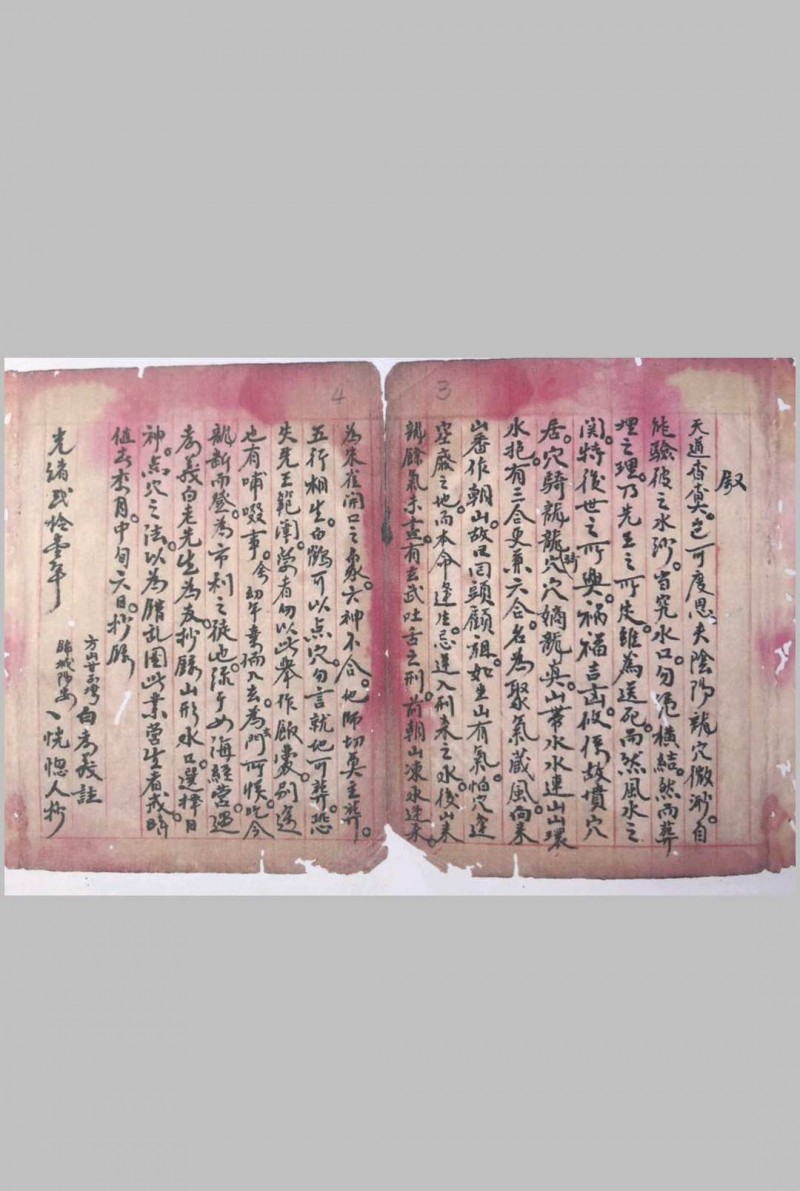 3
叙
天道杳冥。岂可度思夫陰陽龍穴微渺。自
能驗彼之水沙。省究水口勿危橫結。然而葬
埋之理。乃先王之所定雖為送死。而然風水之
関。特後世之所興。禍福吉凶攸係故墳穴
居。穴騎龍龍穴穴嫡龍真。山帶水水連山山環
水抱。有三合更兼六合。名為聚氣藏風。向来
山番作朝山。故曰回頭顧祖。如坐山有氣。怕穴逢
空廢之地。而本命逢生。忌運入刑来之水。後山来
龍餘氣未盡。有玄武吐舌之刑。前朝山凍水逆来。
4
為朱雀開口之象。六神不合。地師切莫主葬。
五行相生。白鶴可以点穴。勿言就地可葬。恐
失先王範圍。營者勿以此舉作飯囊。别途
也有哺啜事。余幼年業儒入玄。為門所悞。迄今
龍断而登。為市利之徒也。緣于如海經营。遇
孝義白老先生為友。抄録山形水口。選擇日
神。点穴之法。以為腊乱國此業营生者戒。時
值去李月。中旬六日。抄録
光緒弍拾壹年
方山廿五灣白孝義註
歸城陽安丶恍惚人抄